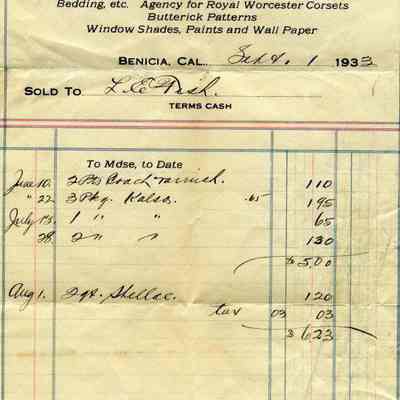 Bedding, etc. Agency for Royal Worcester Corsets
Butterick Patterns
Window Shades, Paints and Wall Paper
BENICIA, CAL., Sept. 1 1933
SOLD TO L. E. Fish.
TERMS CASH
To Mdse, to Date
June 10. 2 Pts Coach Varnish. 110
" 22 3 Pkg. Kalso. .65 195
July 13. 1 " " 65
28. 2 " " 130
$ 5.00
Aug 1. 2 qt. Shellac. 120
tax 03 03
$ 6 23